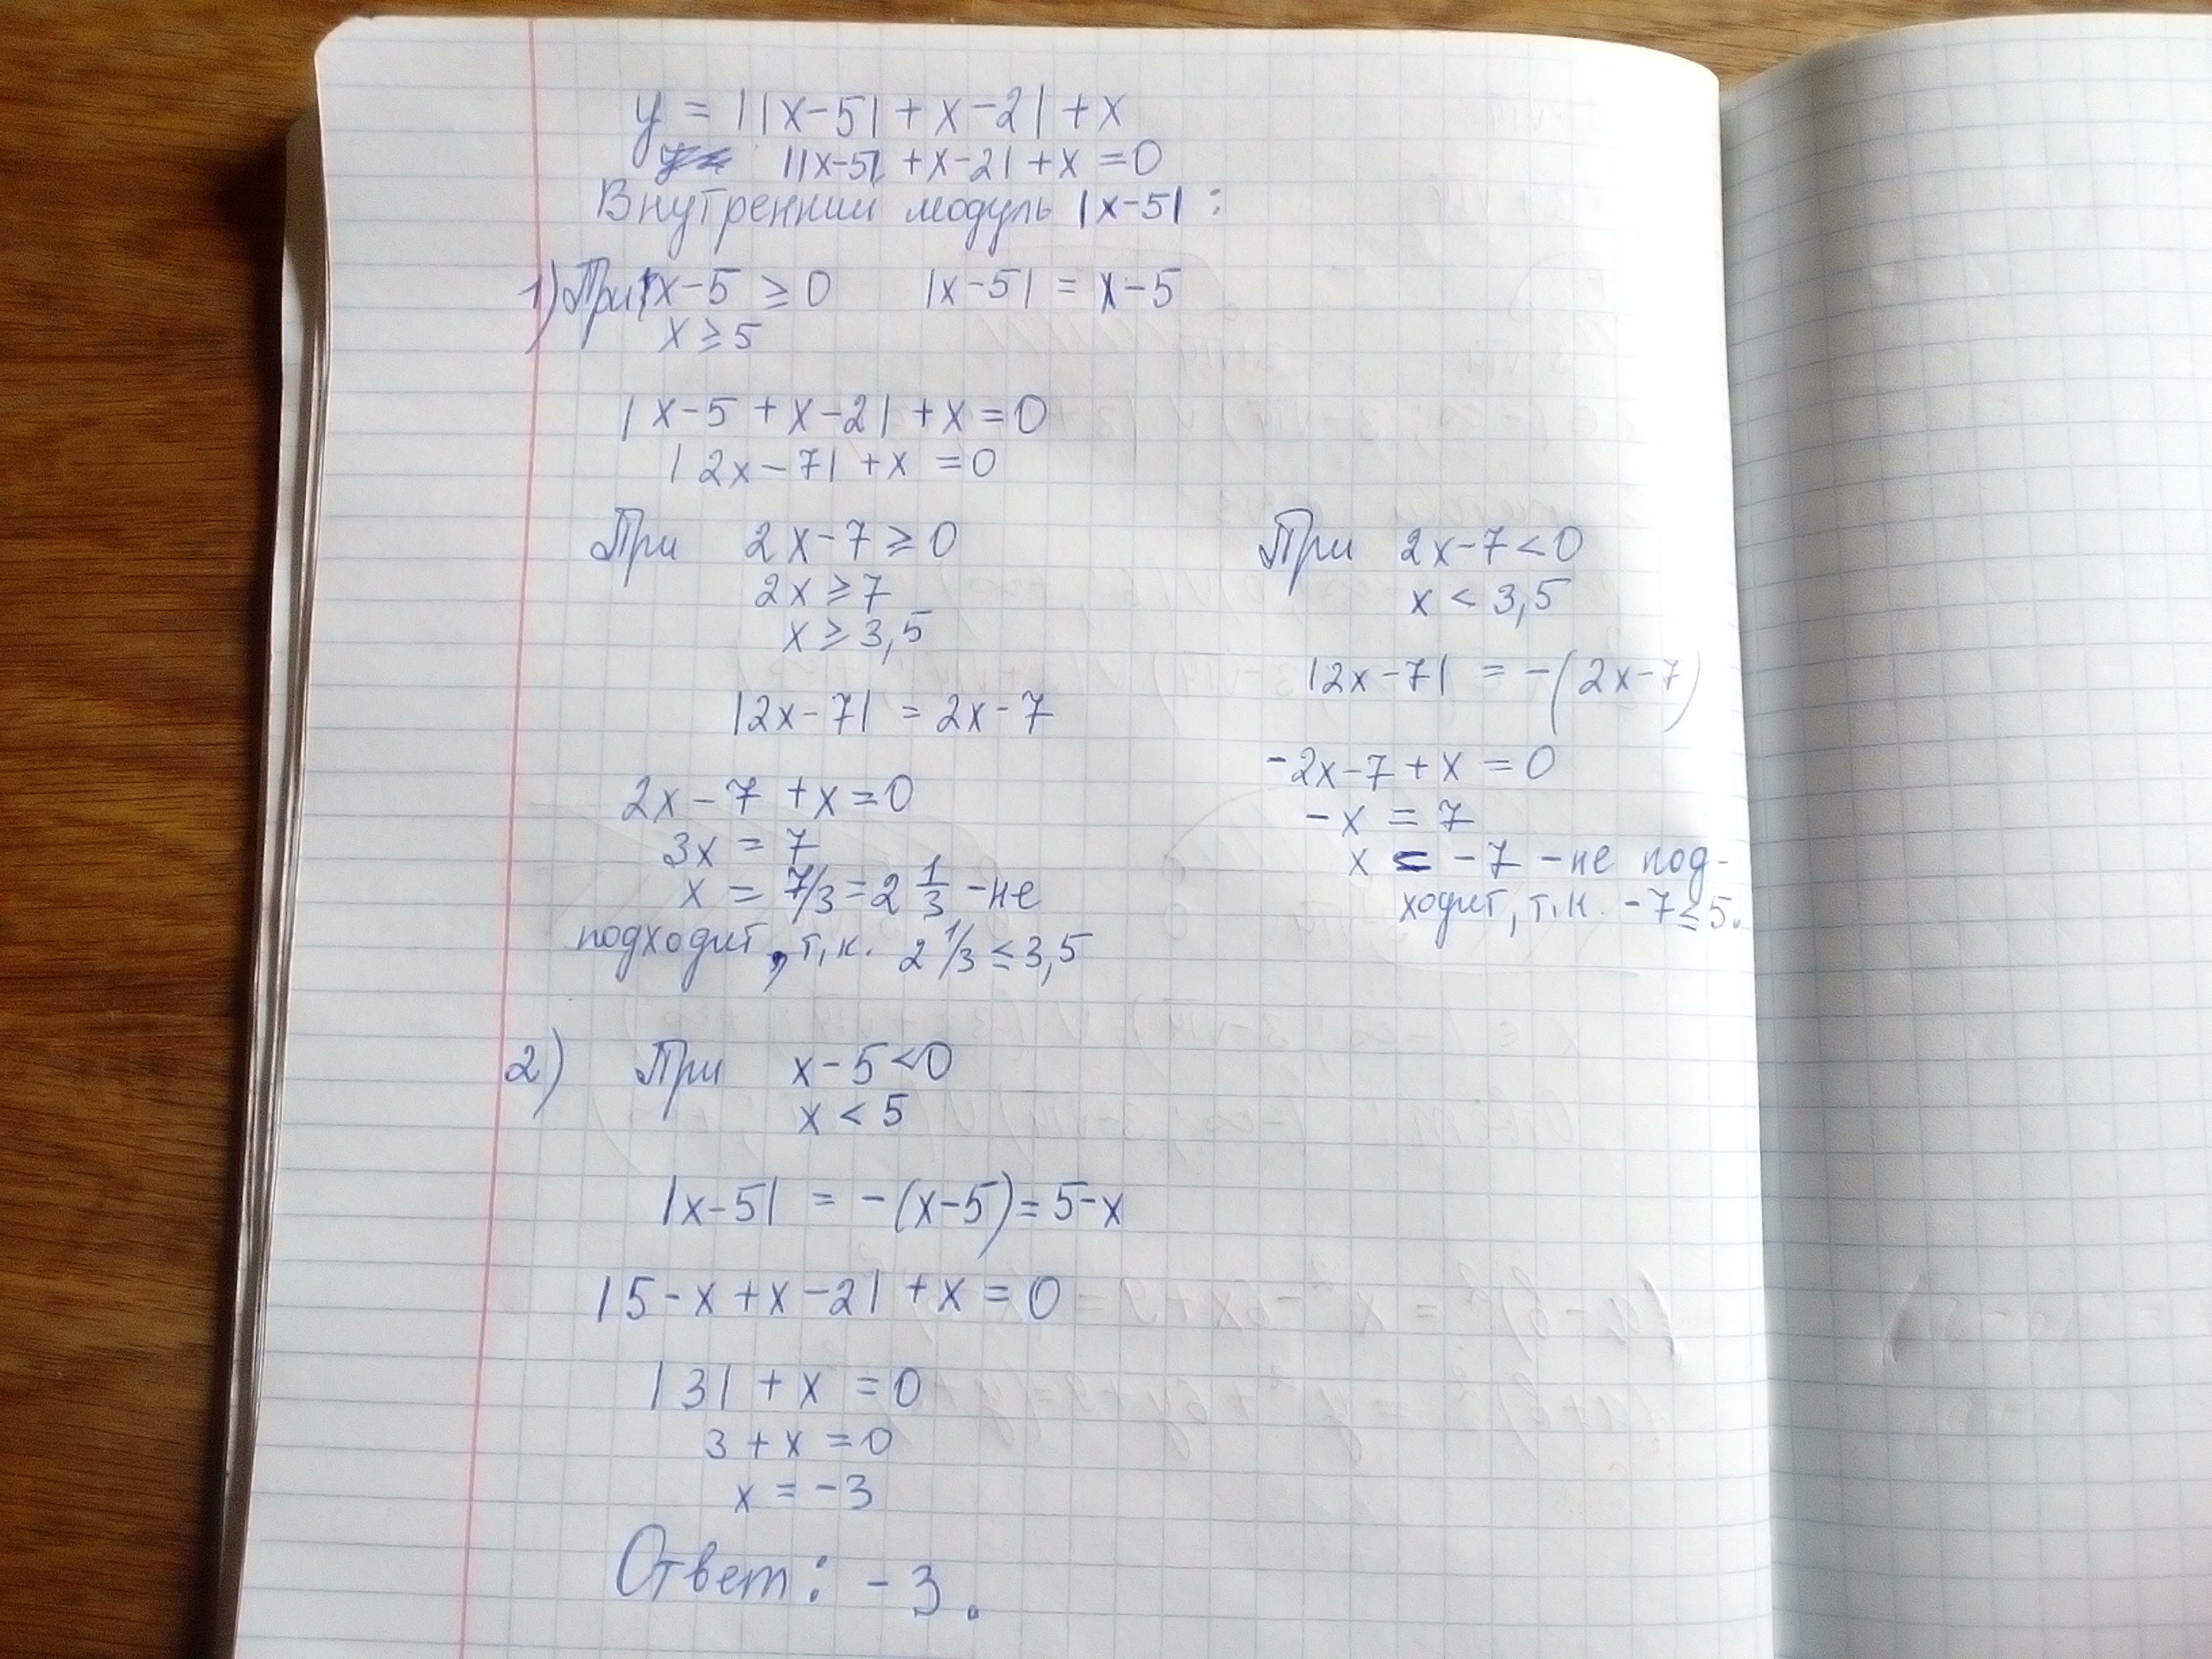 y = ||x-5| + x-2| + x
||x-5| + x-2| + x = 0
Внутренний модуль |x-5| :
1) При x-5 ≥ 0 |x-5| = x-5
x ≥ 5
|x-5 + x-2| + x = 0
|2x-7| + x = 0
При 2x-7 ≥ 0
2x ≥ 7
x ≥ 3,5
|2x-7| = 2x-7
2x-7 + x = 0
3x = 7
x = 7/3 = 2 1/3 - не
подходит, т.к. 2 1/3 ≤ 3,5
При 2x-7 < 0
x < 3,5
|2x-7| = -(2x-7)
-2x-7 + x = 0
-x = 7
x = -7 - не под-
ходит, т.к. -7 ≤ 5.
2) При x-5 < 0
x < 5
|x-5| = -(x-5) = 5-x
|5-x + x-2| + x = 0
|3| + x = 0
3 + x = 0
x = -3
Ответ: -3.